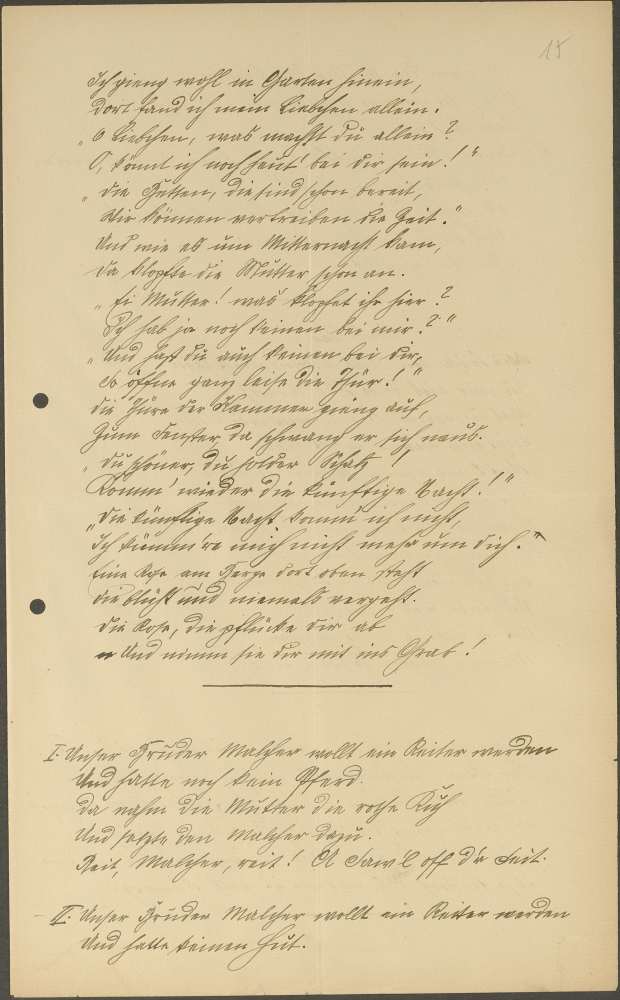 15
Ich gieng wohl in Garten hinein,
Dort fand ich mein Liebchen allein.
„O Liebchen, was machst du allein?
O, könnt ich noch heut' bei dir sein!"
„Die Betten, die sind schon bereit,
Wir können vertreiben die Zeit."
Und wie es um Mitternacht kam,
Da klopfte die Mutter schon an.
„Ei Mutter! was klopfet ihr hier?
Ich hab ja noch keinen bei mir?"
„Und hast du auch keinen bei dir,
So öffne ganz leise die Thür!"
Die Thüre der Kammer gieng auf,
Zum Fenster, da schwang er sich naus.
„Du schöner, du holder Schatz!
Komm' wieder die künftige Nacht!"
„Die künftige Nacht komm' ich nicht,
Ich kümm're mich nicht mehr um dich."
Eine Rose am Berge dort oben steht
Die blüht und niemals vergeht.
Die Rose, die pflücke dir ab
Und nimm sie dir mit ins Grab!
I. Unser Bruder Malcher wollt ein Reiter werden
Und hatte noch kein Pferd.
Da nahm die Mutter die rothe Kuh
Und setzte den Malcher dazu.
Reit, Malcher, reit! A Saw'l off d'r Seit.
II. Unser Bruder Malcher wollt ein Reiter werden
Und hatte keinen Hut.